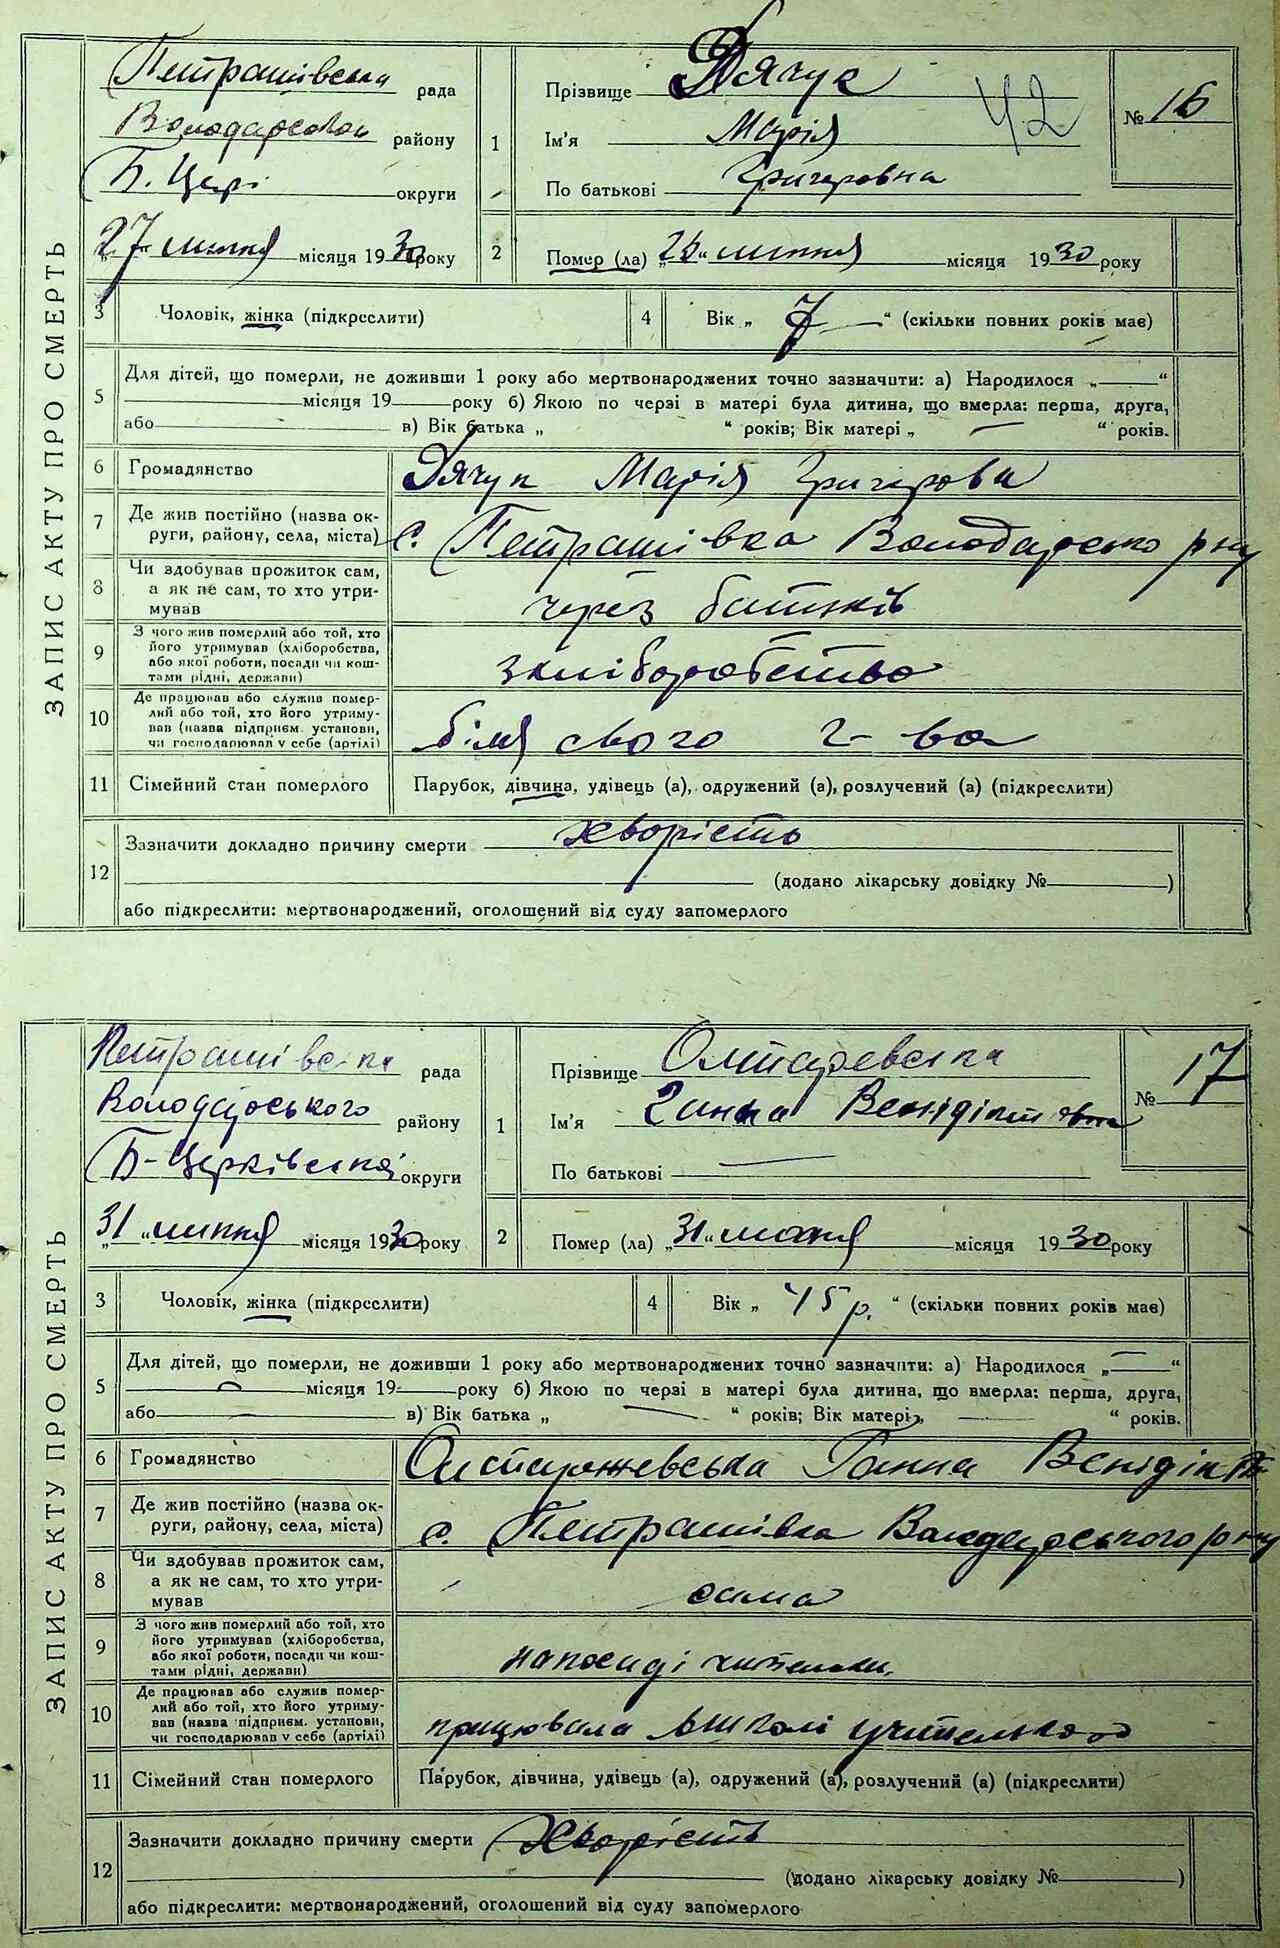 ЗАПИС АКТУ ПРО СМЕРТЬ
Петрашівська рада
Володарської району
Б. Церк округи
„27“ липня місяця 1930 року
1 Прізвище Дячук
Ім'я Марія
По батькові Григоровна
42
№ 16
2 Помер (ла) „ “ липня місяця 1930 року
3 Чоловік, жінка (підкреслити)
4 Вік „ 7 “ (скільки повних років має)
5 Для дітей, що померли, не доживши 1 року або мертвонароджених точно зазначити: а) Народилося „ “
місяця 19 року б) Якою по черзі в матері була дитина, що вмерла: перша, друга,
або в) Вік батька „ “ років; Вік матері „ “ років.
6 Громадянство Дячук Марія Григорова
7 Де жив постійно (назва ок-
руги, району, села, міста) с. Петрашівка Володарсько р ну
8 Чи здобував прожиток сам,
а як не сам, то хто утри-
мував через батьків
9 З чого жив померлий або той, хто
його утримував (хліборобства,
або якої роботи, посади чи кош-
тами рідні, держави) з хліборобства
10 Де працював або служив помер-
лий або той, хто його утриму-
вав (назва підприєм. установи,
чи господарював у себе (артілі) біля свого г-ва
11 Сімейний стан померлого Парубок, дівчина, удівець (а), одружений (а), розлучений (а) (підкреслити)
12 Зазначити докладно причину смерти хворість
(додано лікарську довідку № )
або підкреслити: мертвонароджений, оголошений від суду запомерлого
ЗАПИС АКТУ ПРО СМЕРТЬ
Петрашівська рада
Володарського району
Б-Церківської округи
„31“ липня місяця 1930 року
1 Прізвище
Ім'я Ганна
По батькові
№ 17
2 Помер (ла) „31“ липня місяця 1930 року
3 Чоловік, жінка (підкреслити)
4 Вік „ 45 р. “ (скільки повних років має)
5 Для дітей, що померли, не доживши 1 року або мертвонароджених точно зазначити: а) Народилося „ “
місяця 19 року б) Якою по черзі в матері була дитина, що вмерла: перша, друга,
або в) Вік батька „ “ років; Вік матері „ “ років.
6 Громадянство Ганна
7 Де жив постійно (назва ок-
руги, району, села, міста) с. Петрашівка Володарського р ну
8 Чи здобував прожиток сам,
а як не сам, то хто утри-
мував сама
9 З чого жив померлий або той, хто
його утримував (хліборобства,
або якої роботи, посади чи кош-
тами рідні, держави) на посаді
10 Де працював або служив помер-
лий або той, хто його утриму-
вав (назва підприєм. установи,
чи господарював у себе (артілі) працювала в школі учителькою
11 Сімейний стан померлого Парубок, дівчина, удівець (а), одружений (а), розлучений (а) (підкреслити)
12 Зазначити докладно причину смерти хворість
(додано лікарську довідку № )
або підкреслити: мертвонароджений, оголошений від суду запомерлого